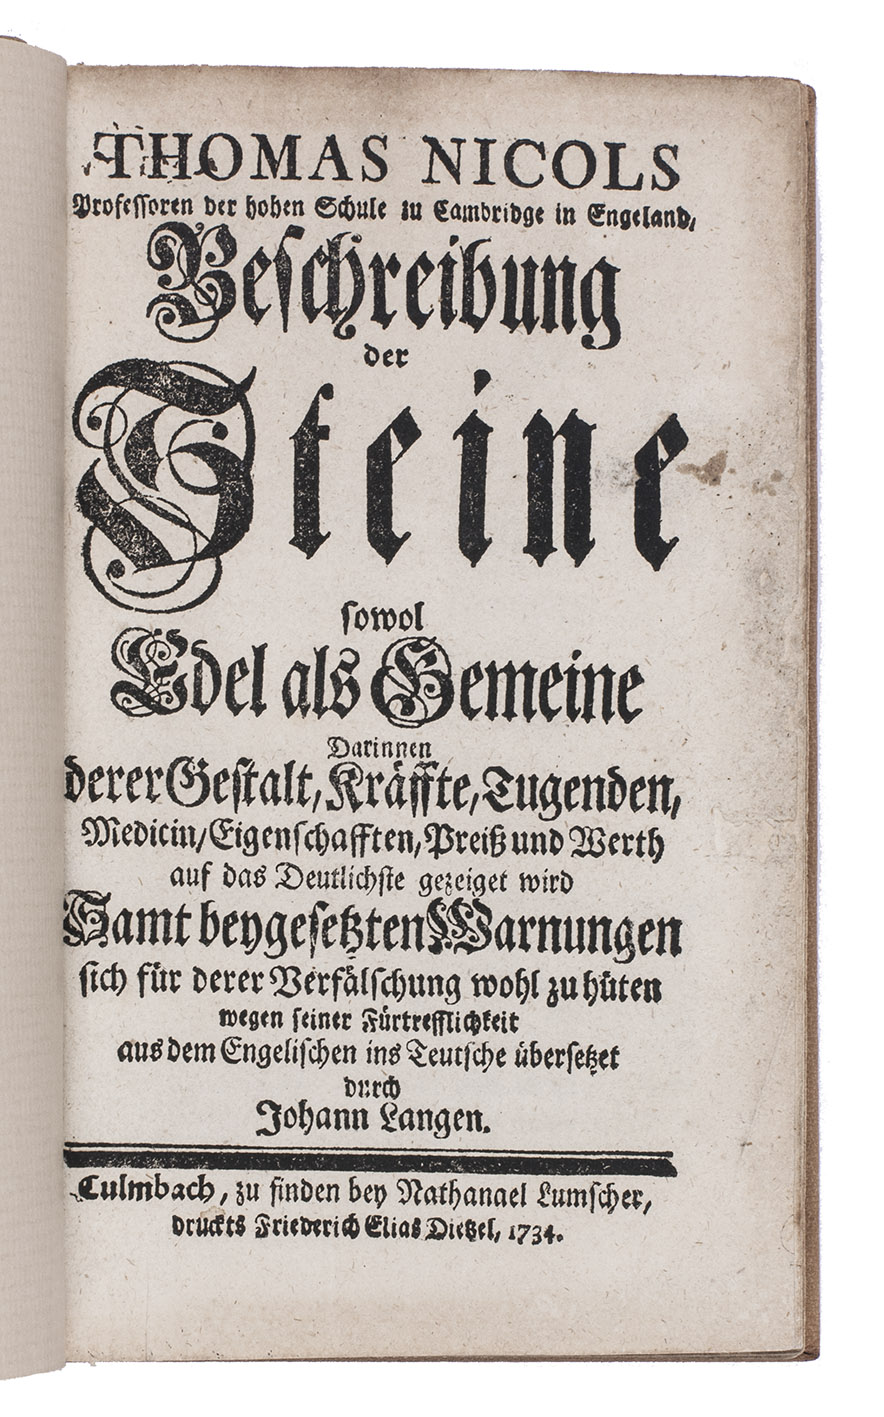 THOMAS NICOLS
Professoren der hohen Schule zu Cambridge in Engeland,
Beschreibung
der
Steine
sowol
Edel als Gemeine
Darinnen
derer Gestalt, Kräffte, Tugenden,
Medicin, Eigenschafften, Preiß und Werth
auf das Deutlichste gezeiget wird
Samt beygesetzten Warnungen
sich für derer Verfälschung wohl zu hüten
wegen seiner Fürtrefflichkeit
aus dem Engelischen ins Teutsche übersetzet
durch
Johann Langen.
Culmbach, zu finden bey Nathanael Lumscher,
druckts Friederich Elias Dietzel, 1734.